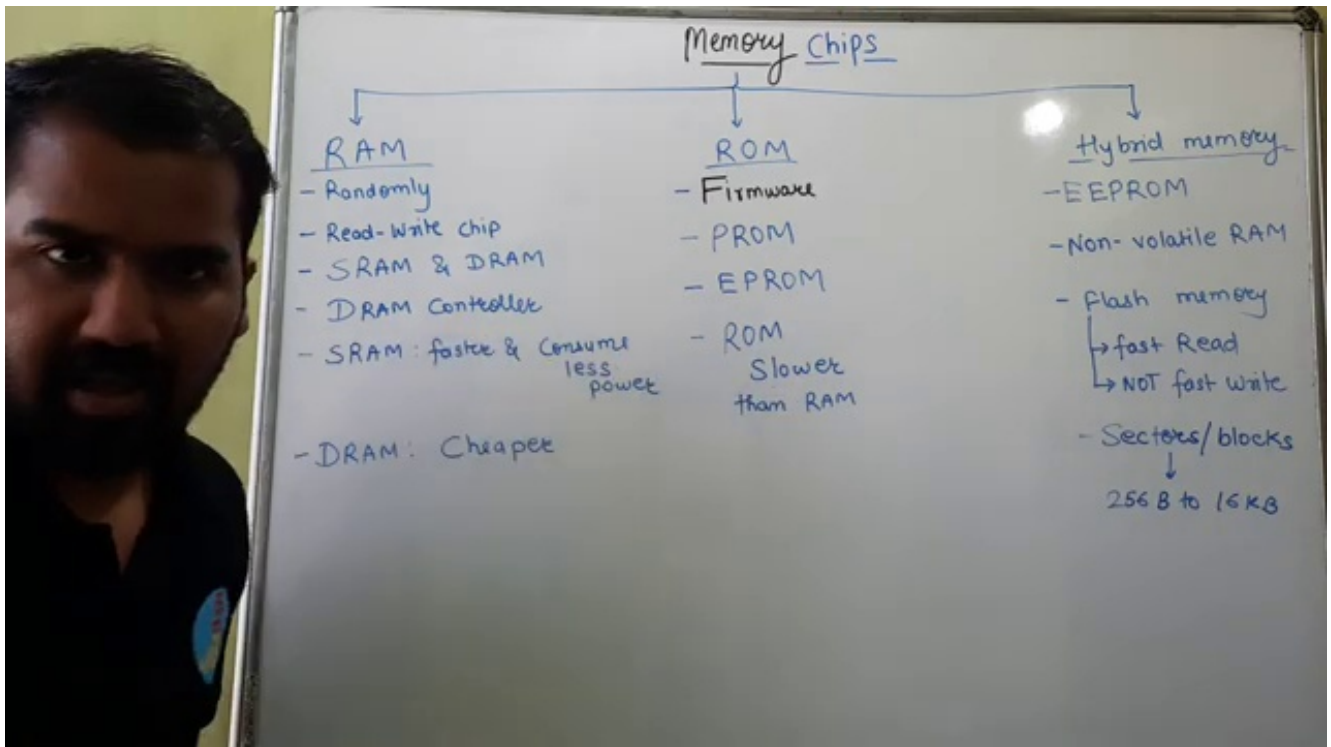 Memory Chips
RAM
- Randomly
- Read-Write chip
- SRAM & DRAM
- DRAM Controller
- SRAM: faster & Consume
less
power
- DRAM: Cheaper
ROM
- Firmware
- PROM
- EPROM
- ROM
Slower
than RAM
Hybrid memory
- EEPROM
- Non-volatile RAM
- Flash memory
→ fast Read
→ NOT fast write
- Sectors/blocks
256 B to 16 KB